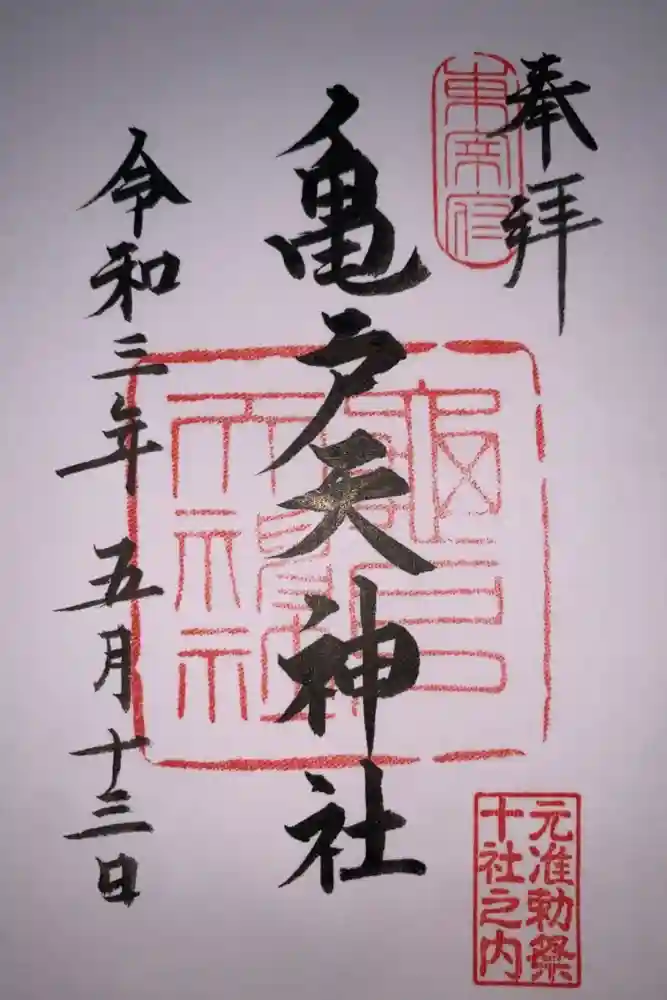 奉拝
東宰府
亀戸天神社
令和三年五月十三日
元准勅祭
十社之内